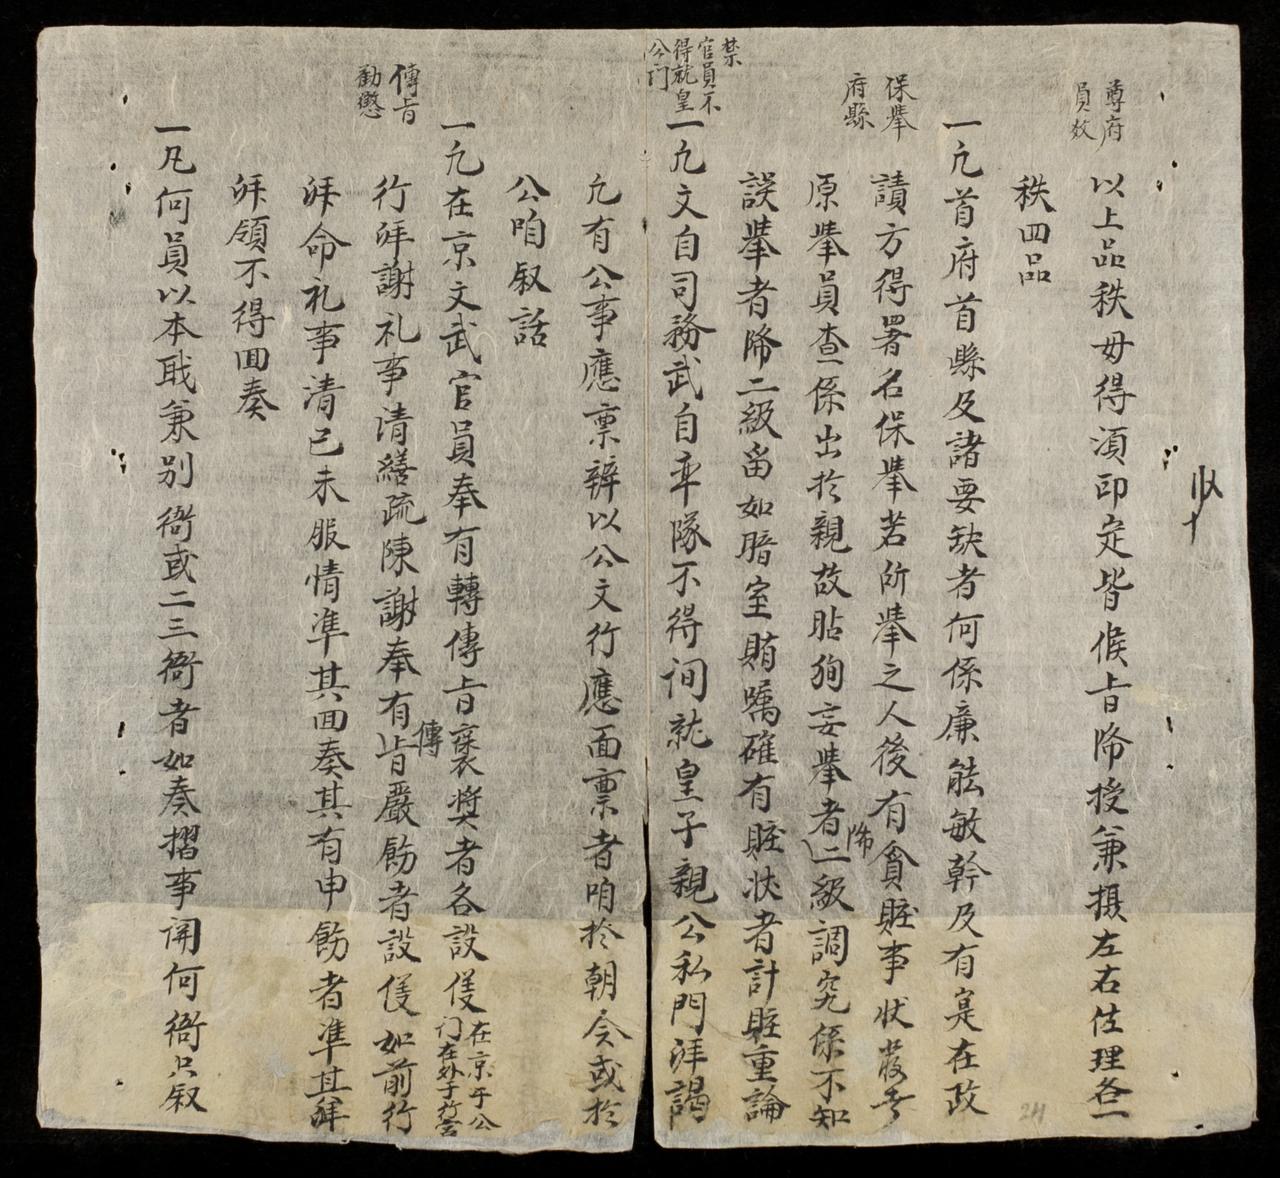 尊府
員效
以上品秩毋得湏印定皆候㫖降授兼摄左右佐理各一
秩四品
保舉
府縣
一凢首府首縣及諸要缺者何係廉能敏幹及有寔在政
讀方得署名保舉若所舉之人後有貪賍事状
原舉員查係出扵親故貼狥妄舉者降二級調究係不知
誤舉者降二級畱如暗室賄嘱確有賍状者計賍重論
禁
官員不
得就皇
公门
一凢文自司務武自率隊不得徃就皇子親公私門拜謁
凢有公事應禀辨以公文行應面禀者咱扵朝会或扵
公咱叙話
傳㫖
勸懲
一凢在京文武官員奉有轉傳㫖褒奬者各設
在京于公
门在外于行宫
行拜謝礼事清繕疏陳謝奉有傳㫖嚴飭者設如前行
拜命礼事清已未服情準其囬奏其有申飭者準其
拜領不得囬奏
一凡何員以本職兼别衙或二三衙者如奏摺事開何衙只叙